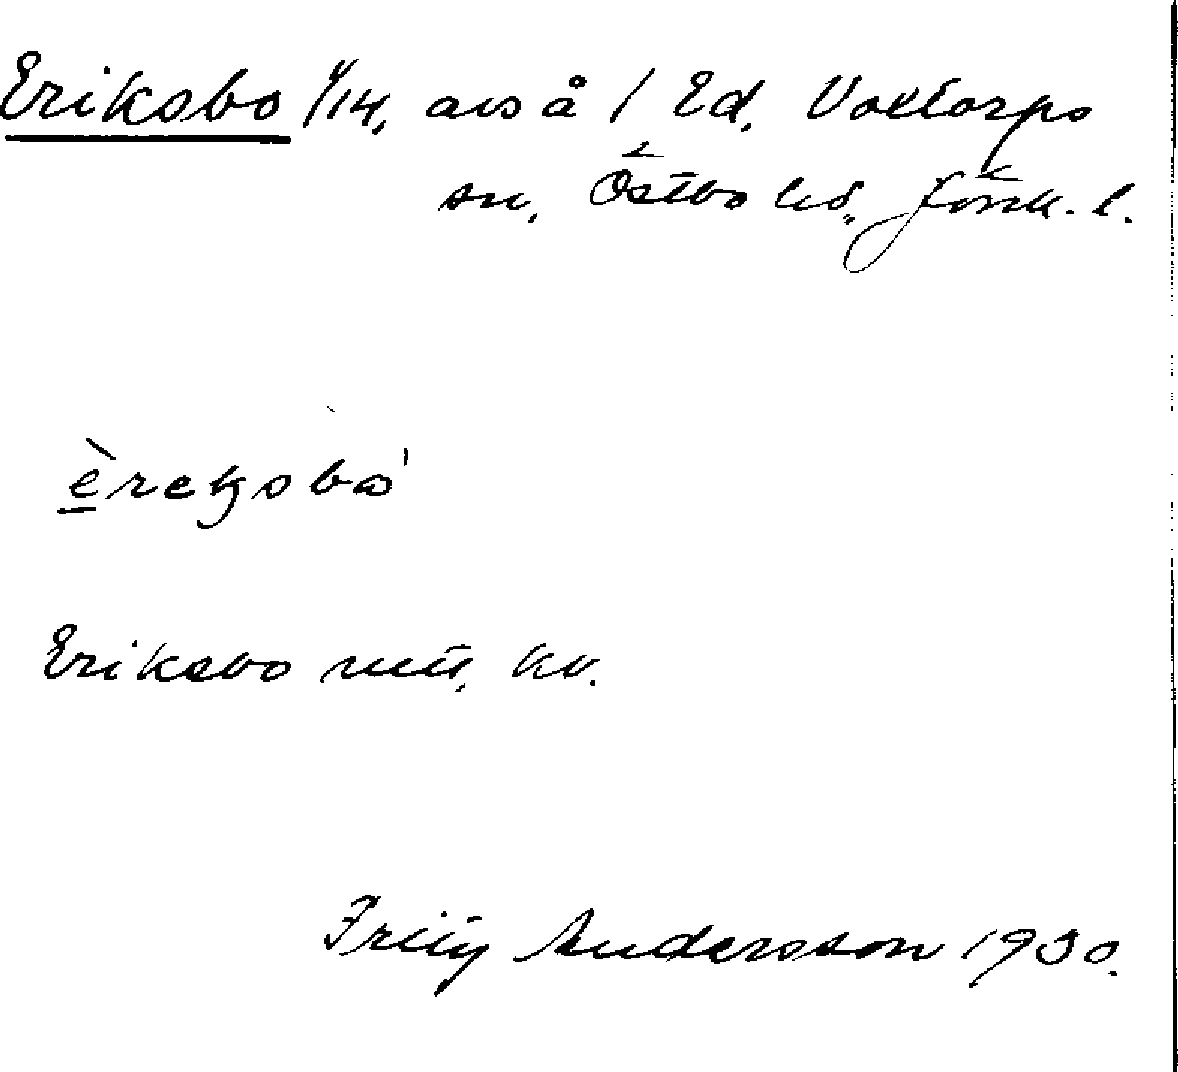 Eriksbo 1/14, avs å 1 Ed, Voxtorps
sn, Östbo hd., Jönk. l.
èreksbω'
Eriksbo mtl, kv.
Fritz Andersson 1930.